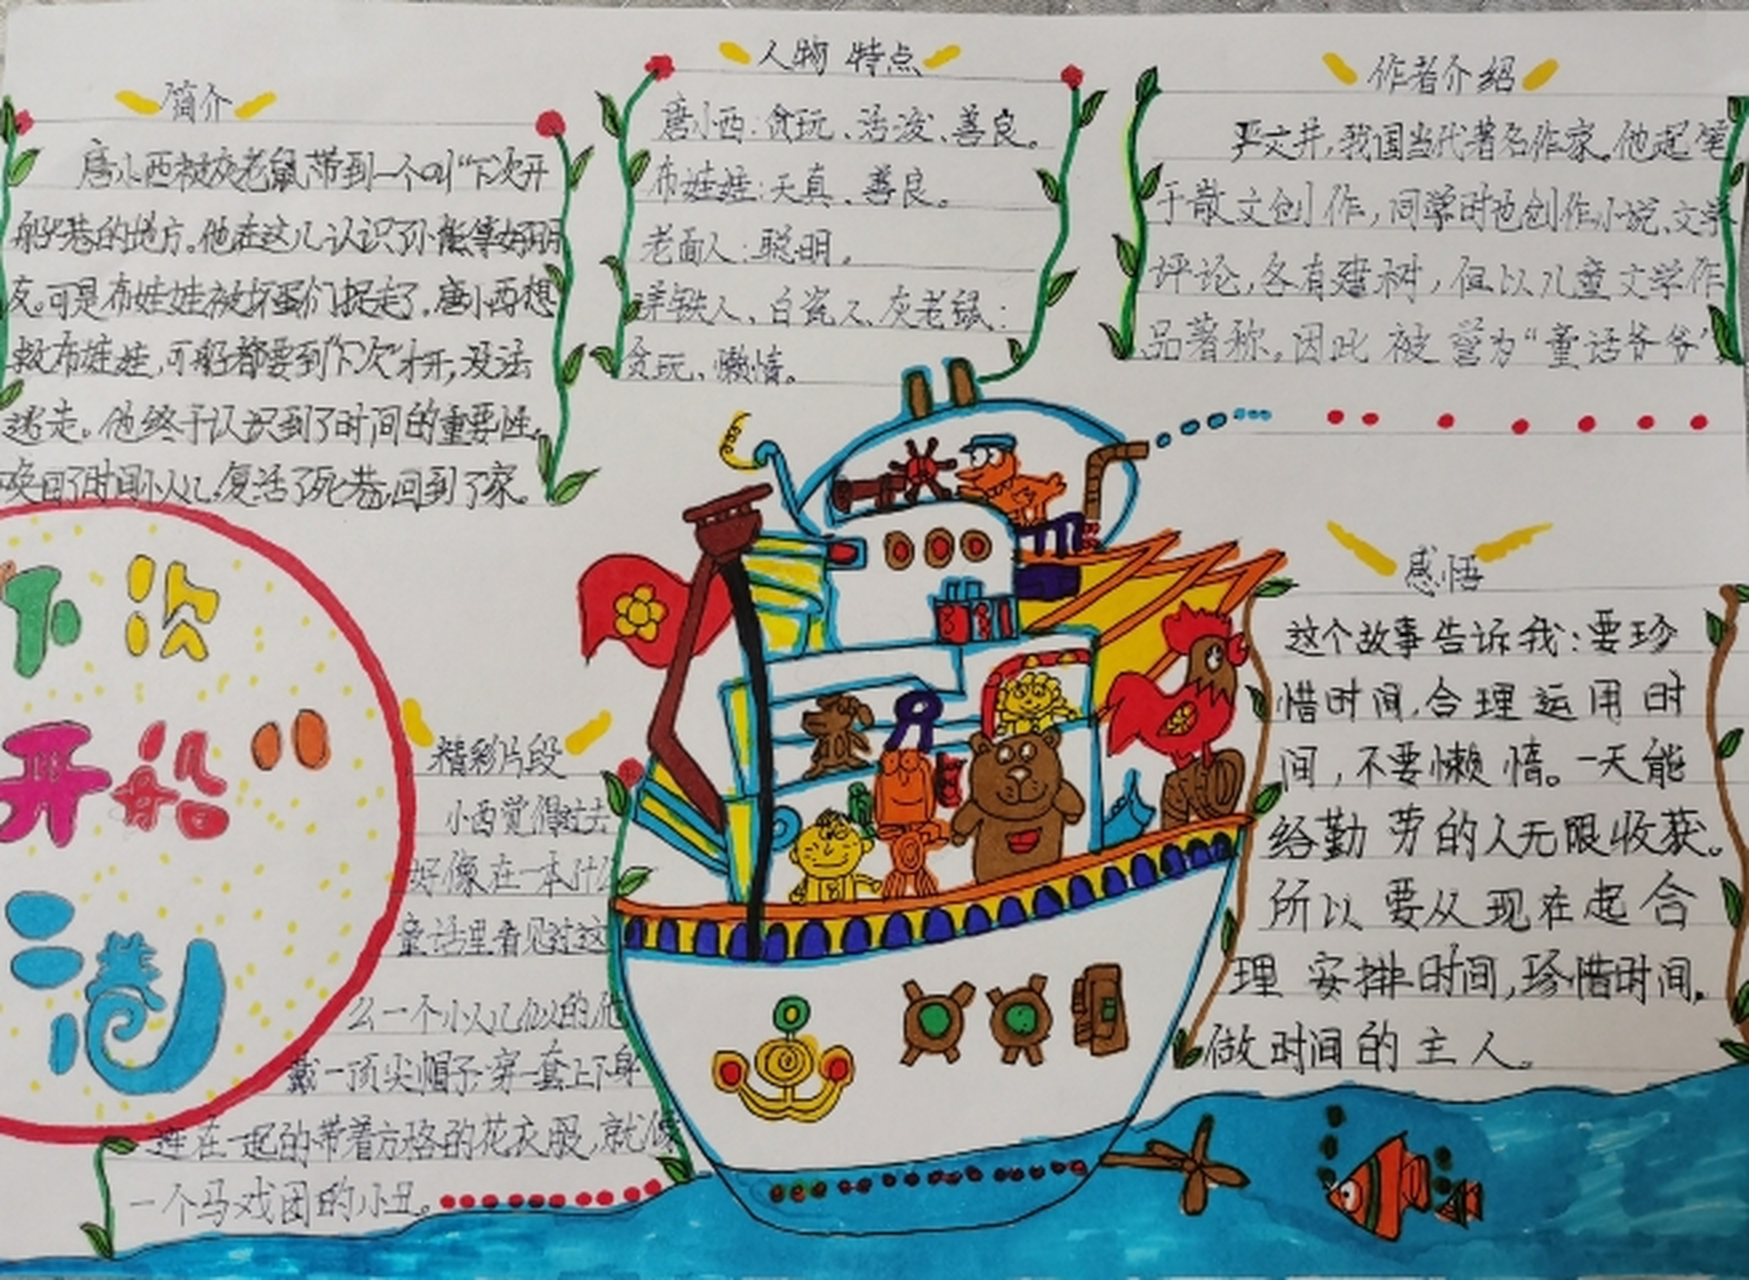 简介
唐小西被灰老鼠带到一个叫“下次开
船”巷的地方。他在这儿认识了小熊等好朋
友。可是布娃娃被坏蛋们捉走了。唐小西想
救布娃娃,可船都要到“下次”才开,没法
逃走。他终于认识到了时间的重要性。
唤回了时间小人儿,复活了死巷,回到了家。
人物 特点
唐小西:贪玩、活泼、善良。
布娃娃:天真、善良。
老面人:聪明。
洋铁人、白瓷人、灰老鼠:
贪玩、懒惰。
作者介绍
严文井,我国当代著名作家。他起笔
于散文创作,同时也创作小说、文学
评论,各有建树,但以儿童文学作
品著称。因此被誉为“童话爷爷”
下次
开船”
港
精彩片段
小西觉得过去
好像在一本什么
童话里看见过这
么一个小人儿似的他
戴一顶尖帽子穿一套上下身
连在一起的带着方格的花衣服,就像
一个马戏团的小丑。
感悟
这个故事告诉我:要珍
惜时间,合理运用时
间,不要懒惰。一天能
给勤劳的人无限收获。
所以要从现在起合
理安排时间,珍惜时间,
做时间的主人。